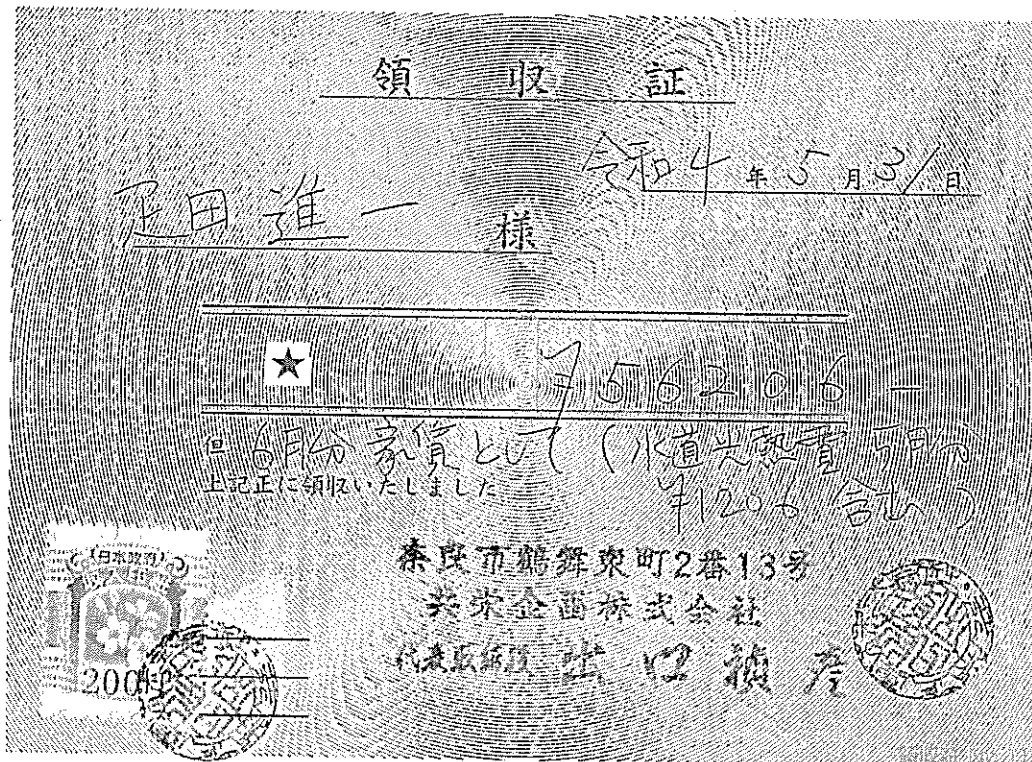 領収証
令和4年5月31日
疋田進一様
★ ¥56206-
但 6月分家賃として(水道光熱費 5月分
上記正に領収いたしました ¥1206 含む)
奈良市鶴舞東町2番13号
共栄企画株式会社
代表取締役 出口禎彦
日本政府
200円